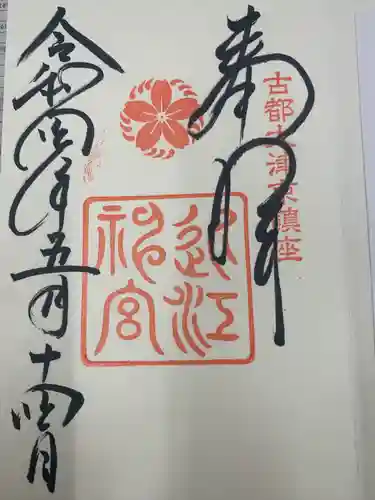 奉拝
古都大津京鎮座
近江神宮
令和四年五月十四日